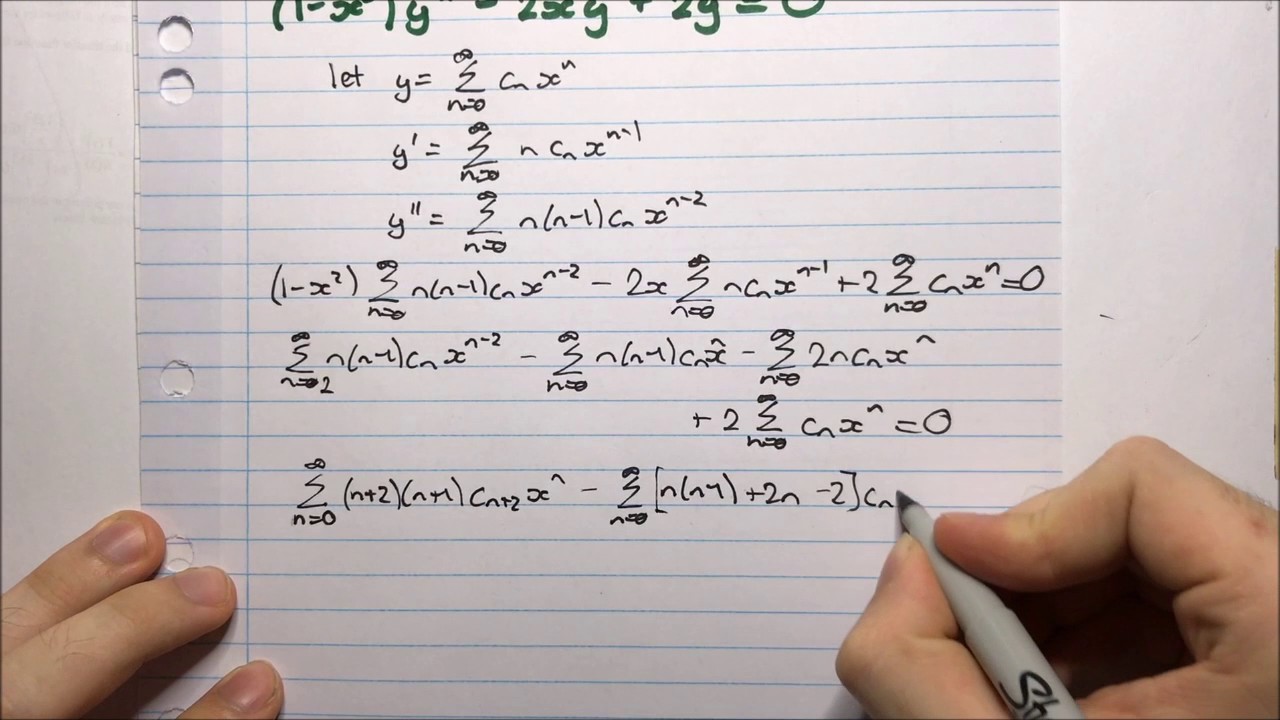 (1-x²)y'' - 2xy' + 2y = 0
let y = ∑_{n=0}^{∞} cₙxⁿ
y' = ∑_{n=0}^{∞} n cₙxⁿ⁻¹
y'' = ∑_{n=0}^{∞} n(n-1)cₙxⁿ⁻²
(1-x²) ∑_{n=0}^{∞} n(n-1)cₙxⁿ⁻² - 2x ∑_{n=0}^{∞} ncₙxⁿ⁻¹ + 2 ∑_{n=0}^{∞} cₙxⁿ = 0
∑_{n=2}^{∞} n(n-1)cₙxⁿ⁻² - ∑_{n=0}^{∞} n(n-1)cₙxⁿ - ∑_{n=0}^{∞} 2ncₙxⁿ
+ 2 ∑_{n=0}^{∞} cₙxⁿ = 0
∑_{n=0}^{∞} (n+2)(n+1)cₙ₊₂xⁿ - ∑_{n=0}^{∞} [n(n-1) + 2n - 2]cₙ